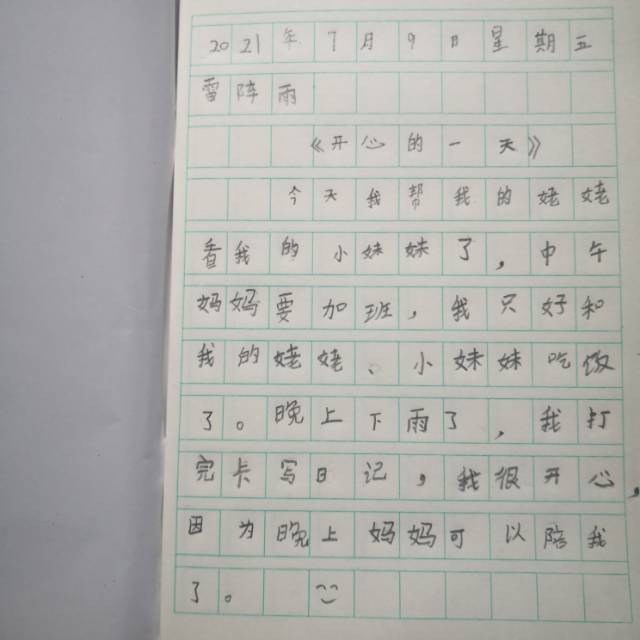 2021年7月9日星期五
雷阵雨
《开心的一天》
今天我帮我的姥姥
看我的小妹妹了,中午
妈妈要加班,我只好和
我的姥姥、小妹妹吃饭
了。晚上下雨了,我打
完卡写日记,我很开心,
因为晚上妈妈可以陪我
了。